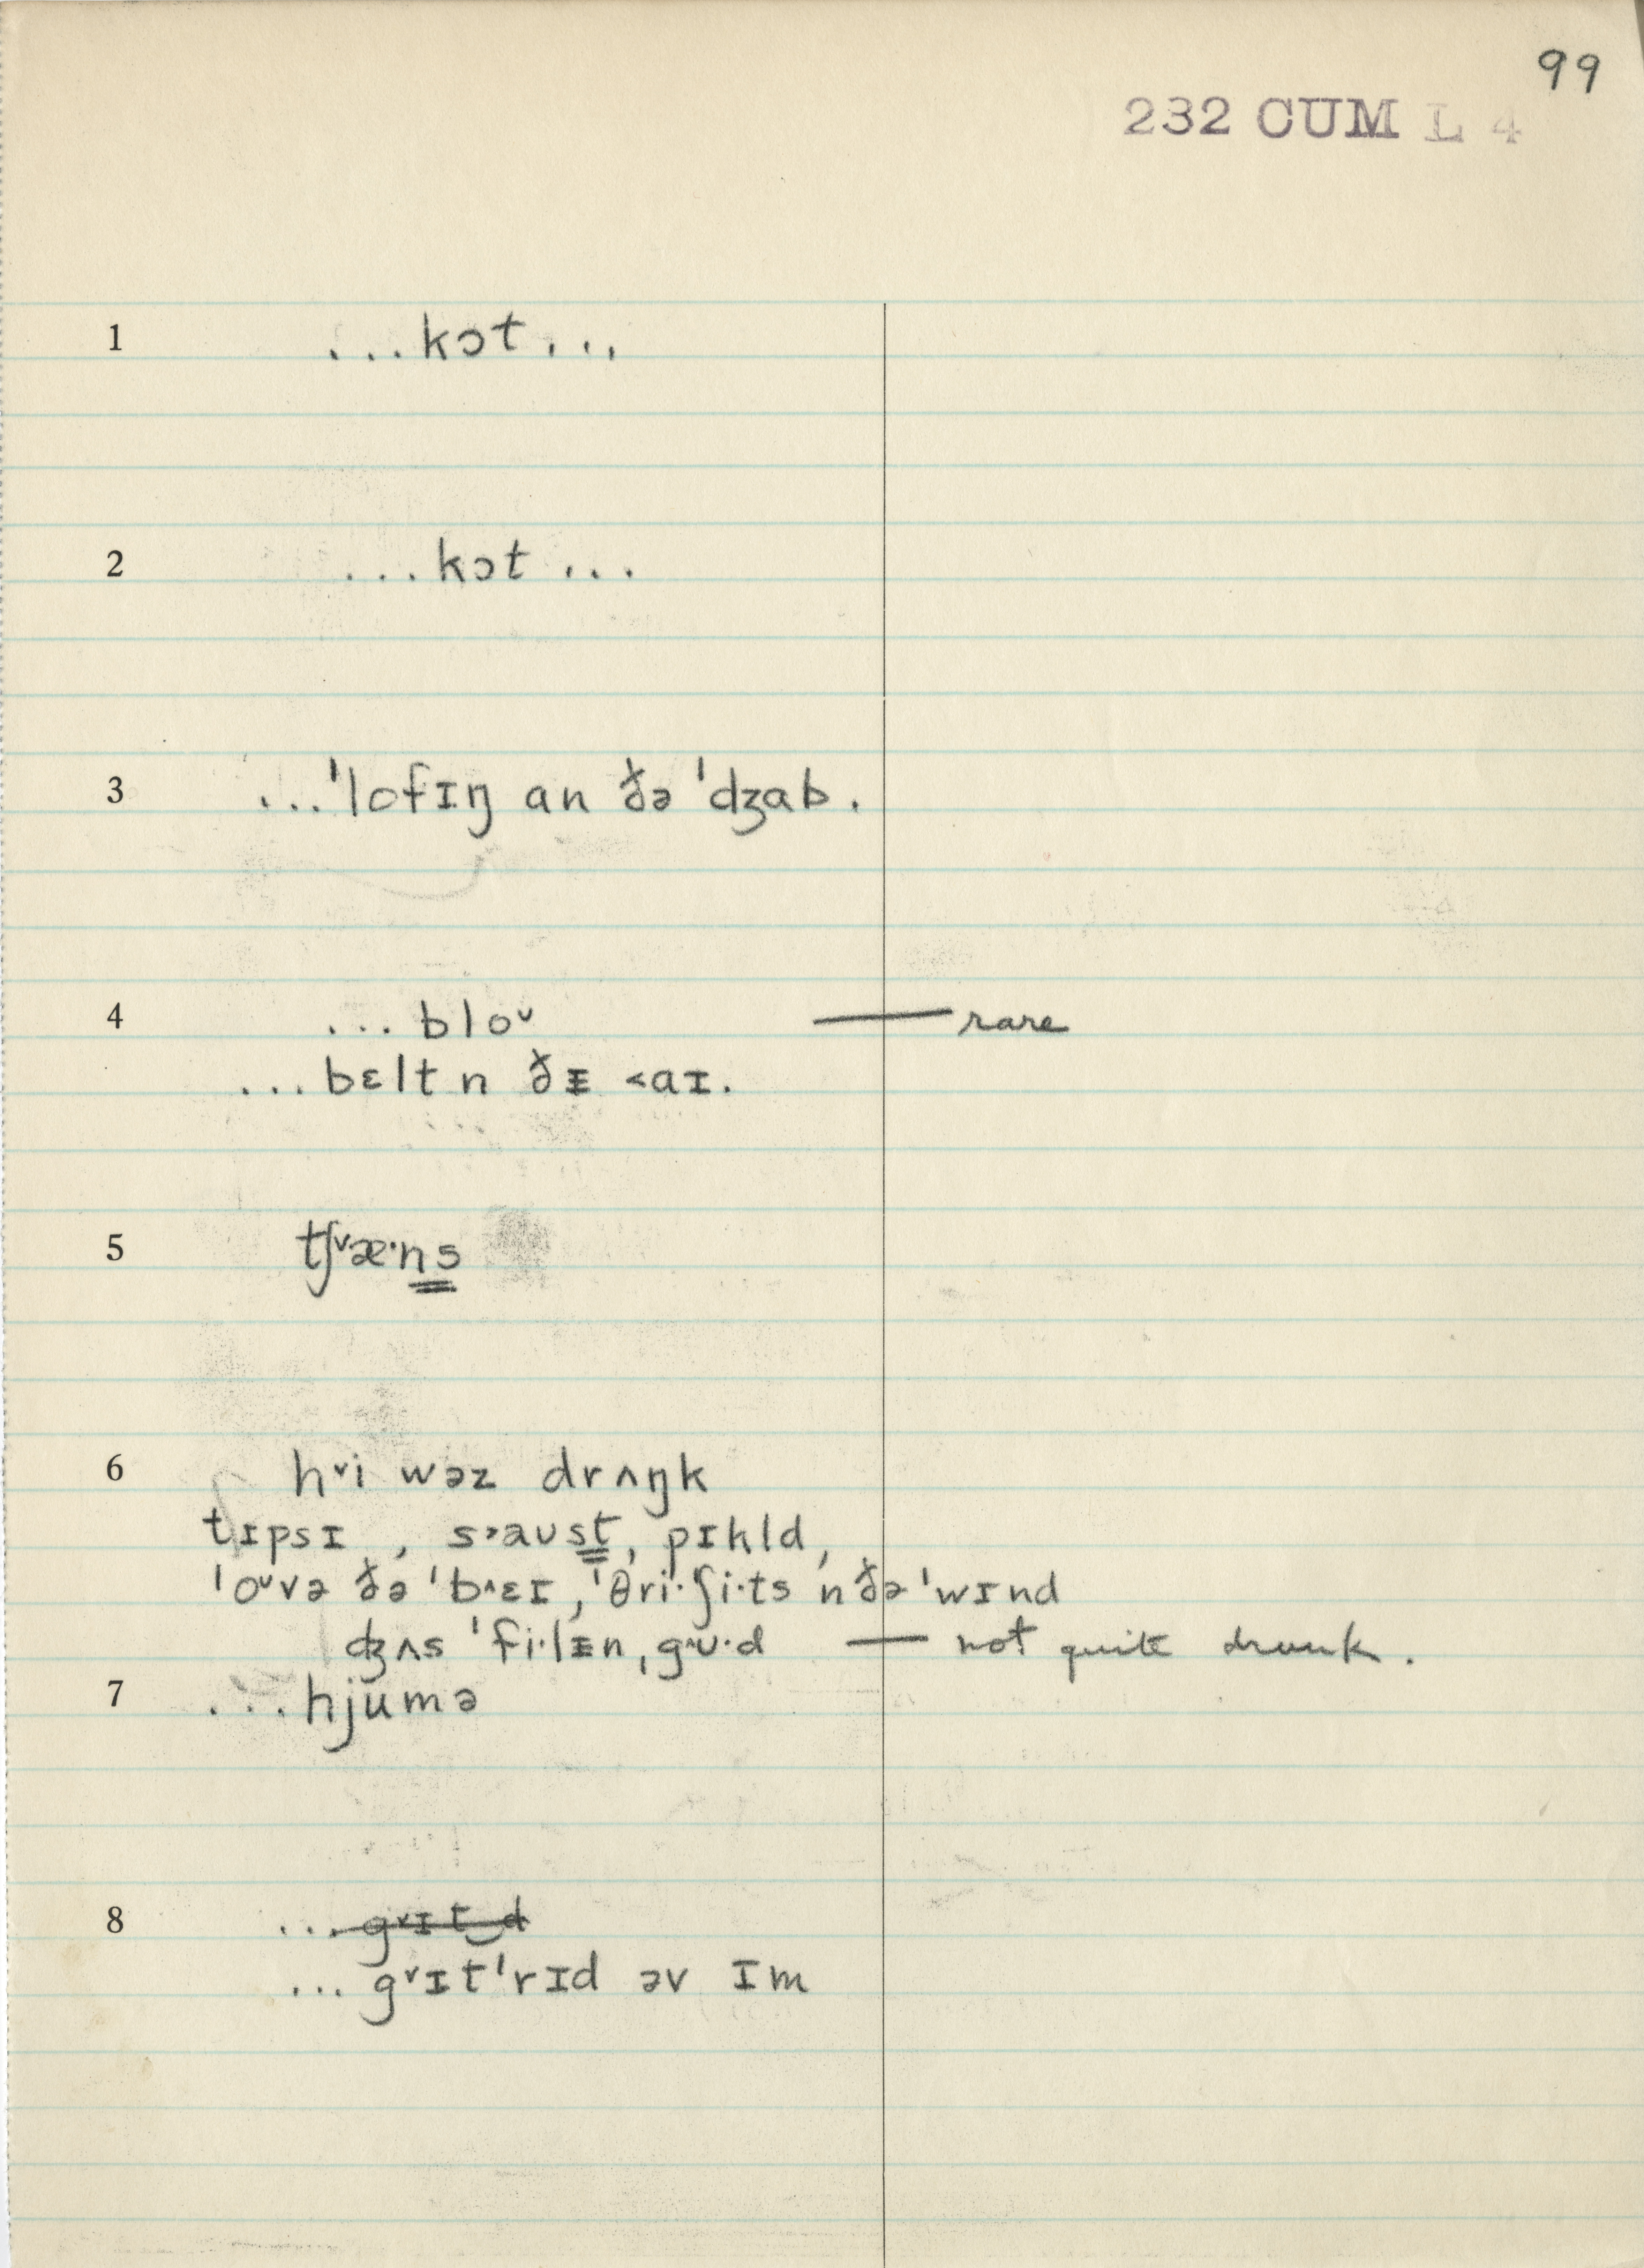 99
232 CUM L 4
1 ...kɔt...
2 ...kɔt...
3 ...ˈlofɪŋ an ðə ˈdʒab.
4 ...bloᶷ — rare
...bɛlt n ðᵻ ˂aɪ.
5 tʃ˅æ·n̳s̳
6 h˅i wəz drʌŋk
tɪpsɪ, s˃aʊs̳t̳, pɪkld,
ˈoᶷvə ðə ˈb˄ɛɪ, ˈθri·ʃi·ts n ðə ˈwɪnd
ʤʌs ˈfi·lᵻn, g˄ʊ·d — not quite drunk.
7 ...hjumə
8 ... g˅ɪt‿d
... g˅ɪtˈrɪd əv ɪm